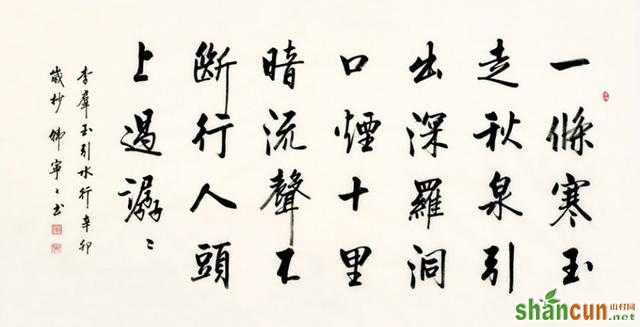 一條寒玉
走秋泉引
出深羅洞
口煙十里
暗流聲不
斷行人頭
上過潺〻
李羣玉引水行辛卯
歲杪韓寧〻书
shancun
山村网
.net